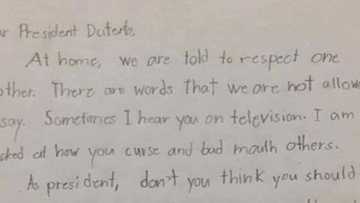 r President Duterte,
At home, we are told to respect one
other. There are words that we are not allow
say. Sometimes I hear you on television. I am
cked at how you curse and bad mouth others.
As president, don't you think you should